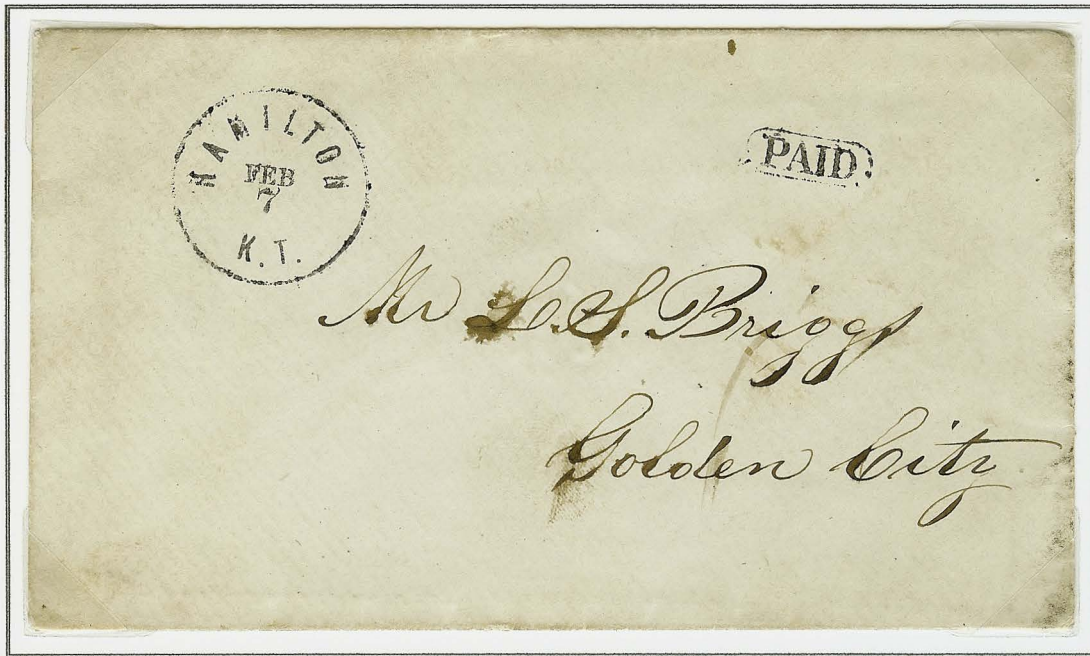 HAMILTON
FEB
7
K.T.
PAID
Mr L.S. Briggs
Golden City